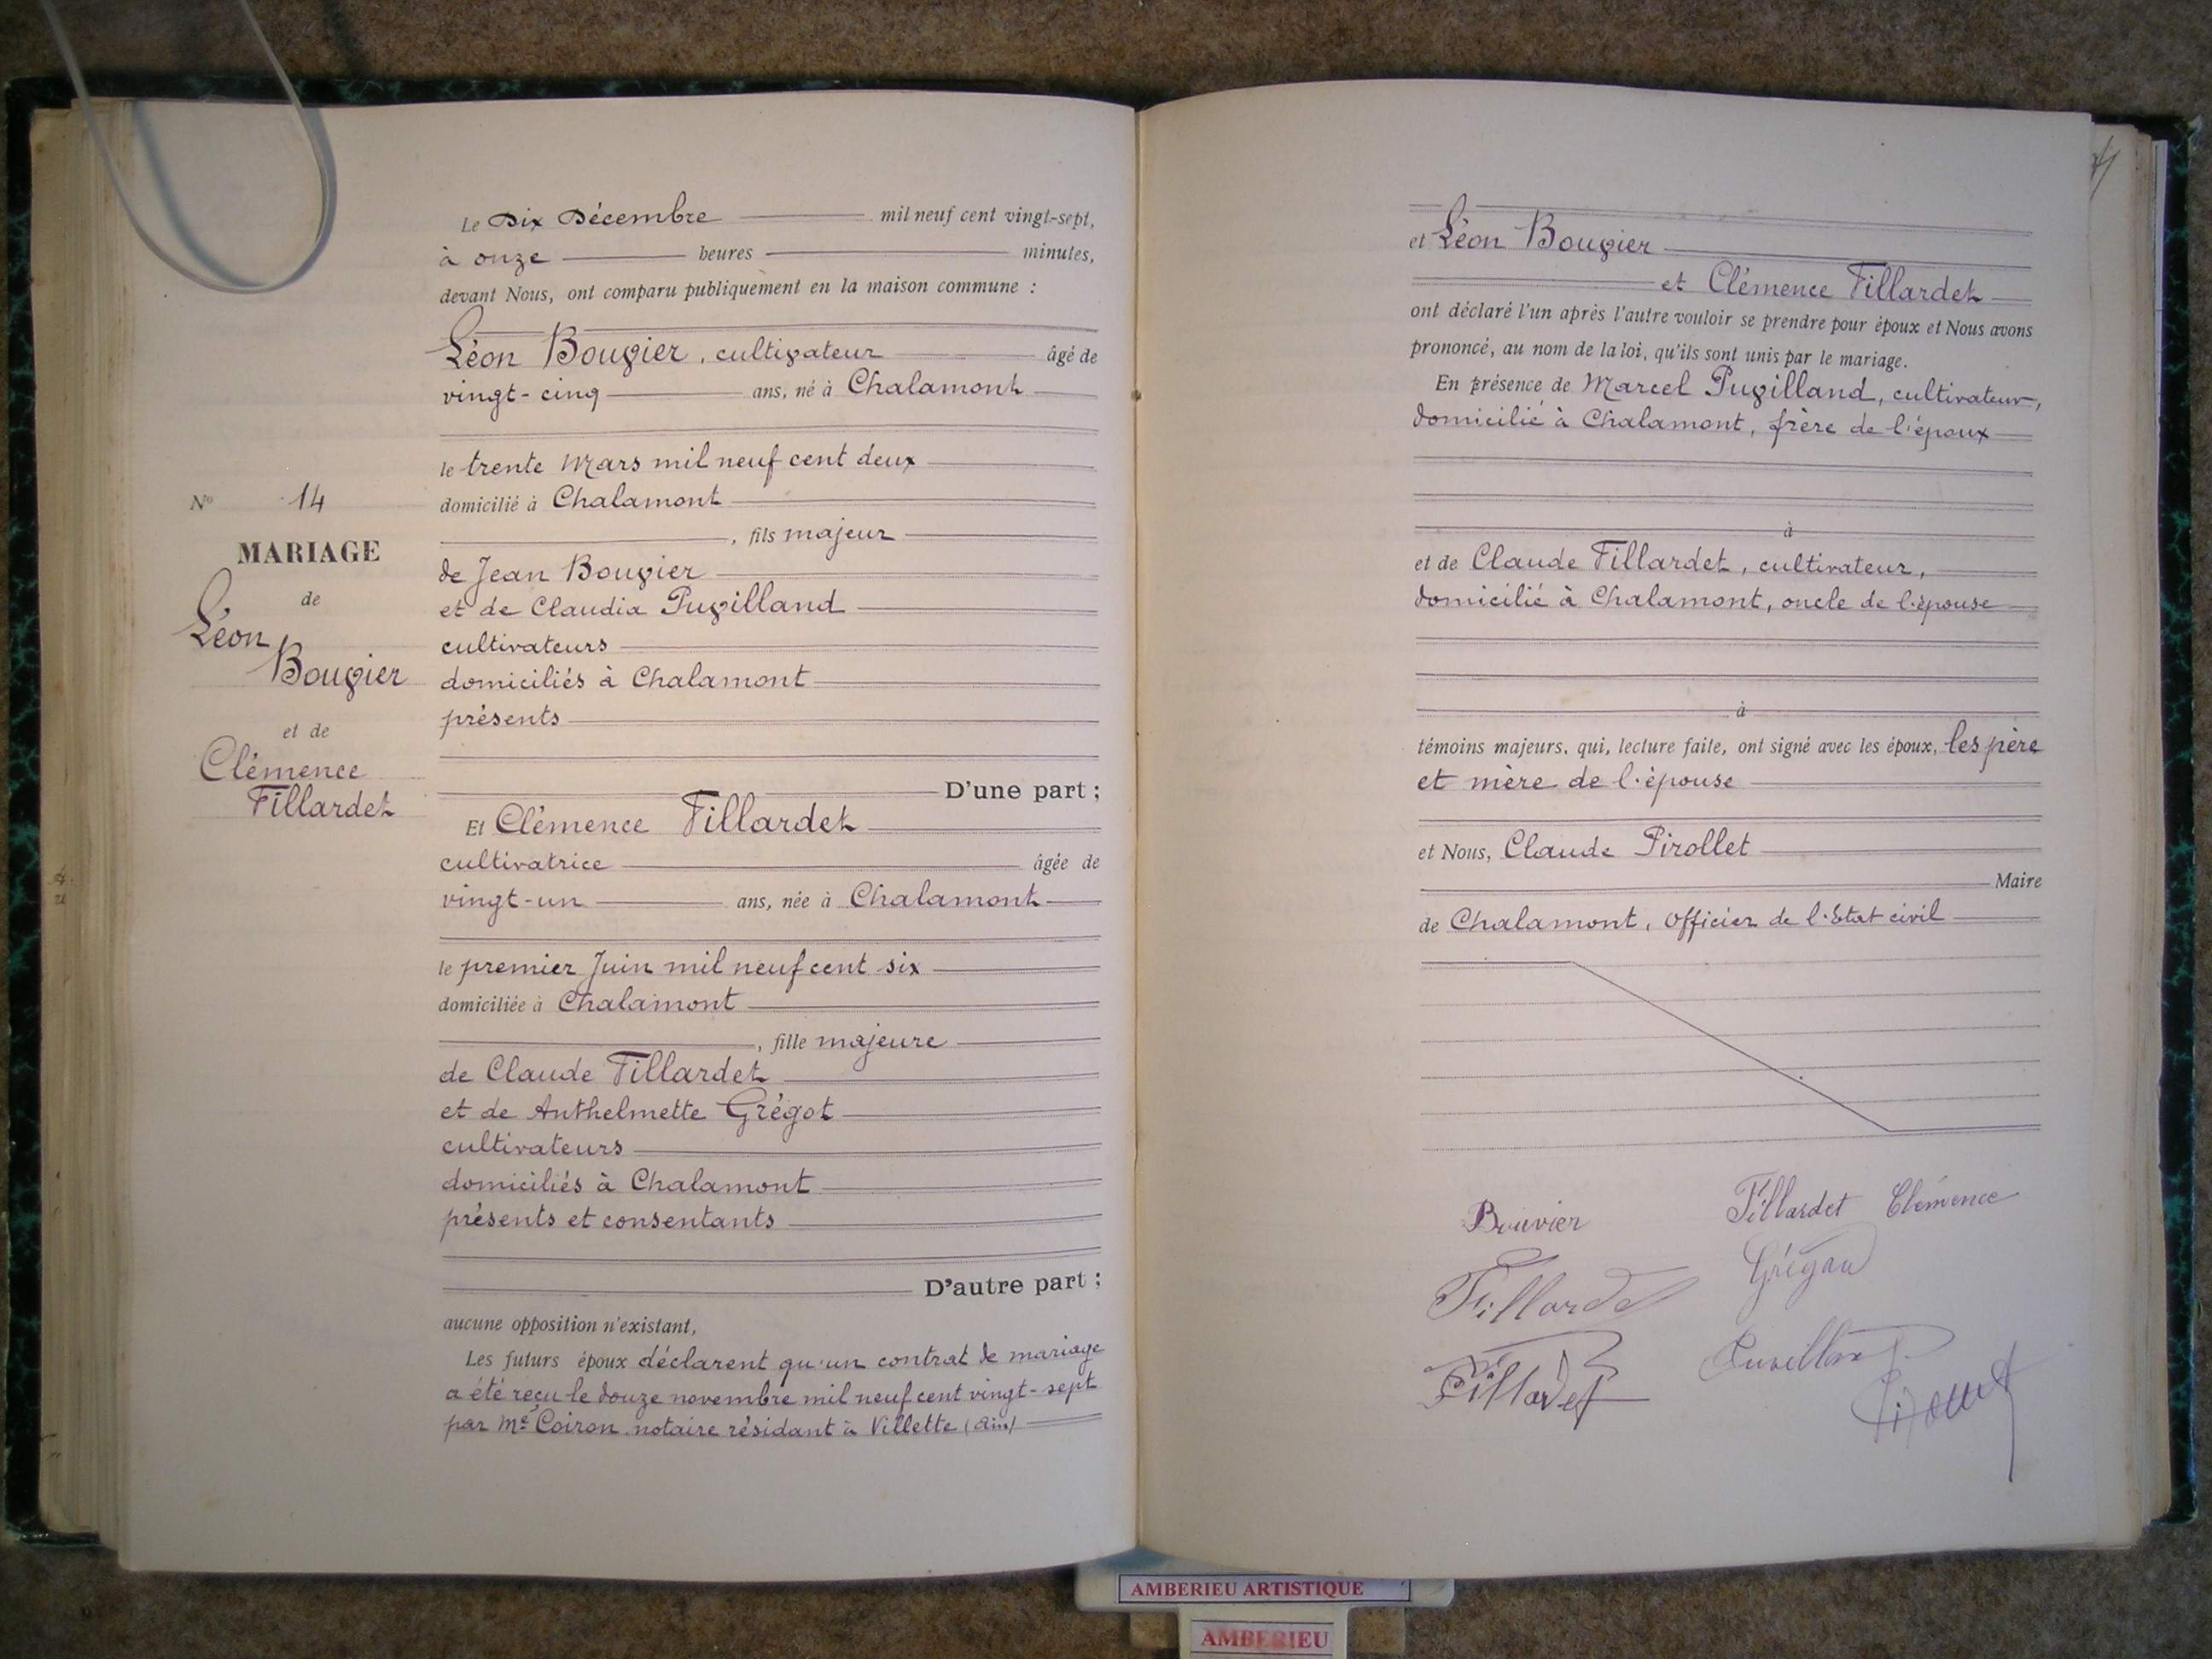 Le Dix Décembre mil neuf cent vingt-sept,
à onze heures minutes,
devant Nous, ont comparu publiquement en la maison commune :
Léon Bouvier, cultivateur âgé de
vingt-cinq ans, né à Chalamont
le trente Mars mil neuf cent deux
domicilié à Chalamont
, fils majeur
de Jean Bouvier
et de Claudia Puvilland
cultivateurs
domiciliés à Chalamont
présents
D'une part ;
Et Clémence Fillardet
cultivatrice âgée de
vingt-un ans, née à Chalamont
le premier Juin mil neuf cent six
domiciliée à Chalamont
, fille majeure
de Claude Fillardet
et de Anthelmette Grégot
cultivateurs
domiciliés à Chalamont
présents et consentants
D'autre part ;
aucune opposition n'existant,
Les futurs époux déclarent qu'un contrat de mariage
a été reçu le douze novembre mil neuf cent vingt-sept
par Me Coiron notaire résidant à Villette (Ain)
No 14
MARIAGE
de
Léon
Bouvier
et de
Clémence
Fillardet
et Léon Bouvier
et Clémence Fillardet
ont déclaré l'un après l'autre vouloir se prendre pour époux et Nous avons
prononcé, au nom de la loi, qu'ils sont unis par le mariage.
En présence de Marcel Puvilland, cultivateur,
domicilié à Chalamont, frère de l'époux
à
et de Claude Fillardet, cultivateur,
domicilié à Chalamont, oncle de l'épouse
à
témoins majeurs, qui, lecture faite, ont signé avec les époux, les père
et mère de l'épouse
et Nous, Claude Pirollet
Maire
de Chalamont, Officier de l'Etat civil
Bouvier
Fillardet Clémence
Fillardet
Fillardet
AMBERIEU ARTISTIQUE
AMBERIEU